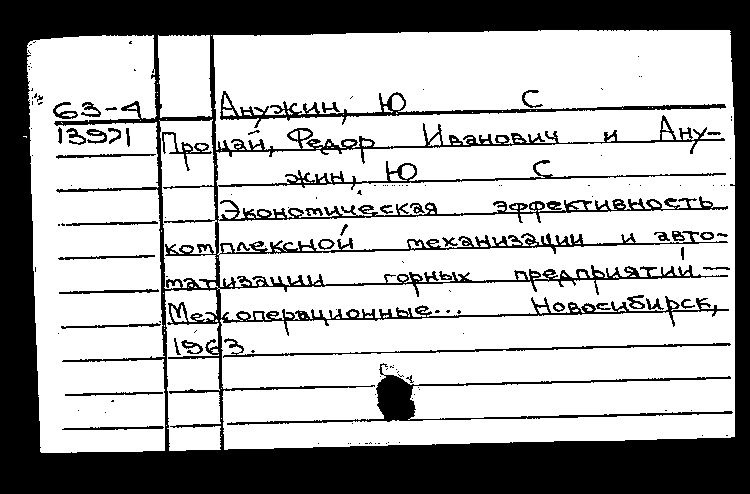 63-4 Анужин, Ю С
13971 Процай, Федор Иванович и Ану-
жин, Ю С
Экономическая эффективность
комплексной механизации и авто-
матизации горных предприятий —
Межоперационные... Новосибирск,
1963.